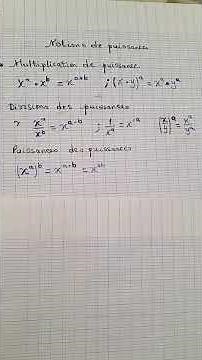 Notions de puissance
Multiplication de puissance
xᵃ * xᵇ = xᵃ⁺ᵇ ; (x * y)ᵃ = xᵃ * yᵃ
Divisions des puissances
xᵃ/xᵇ = xᵃ⁻ᵇ ; 1/xᵃ = x⁻ᵃ (x/y)ᵃ = xᵃ/yᵃ
Puissances des puissances
(xᵃ)ᵇ = xᵃ*ᵇ = xᵃᵇ